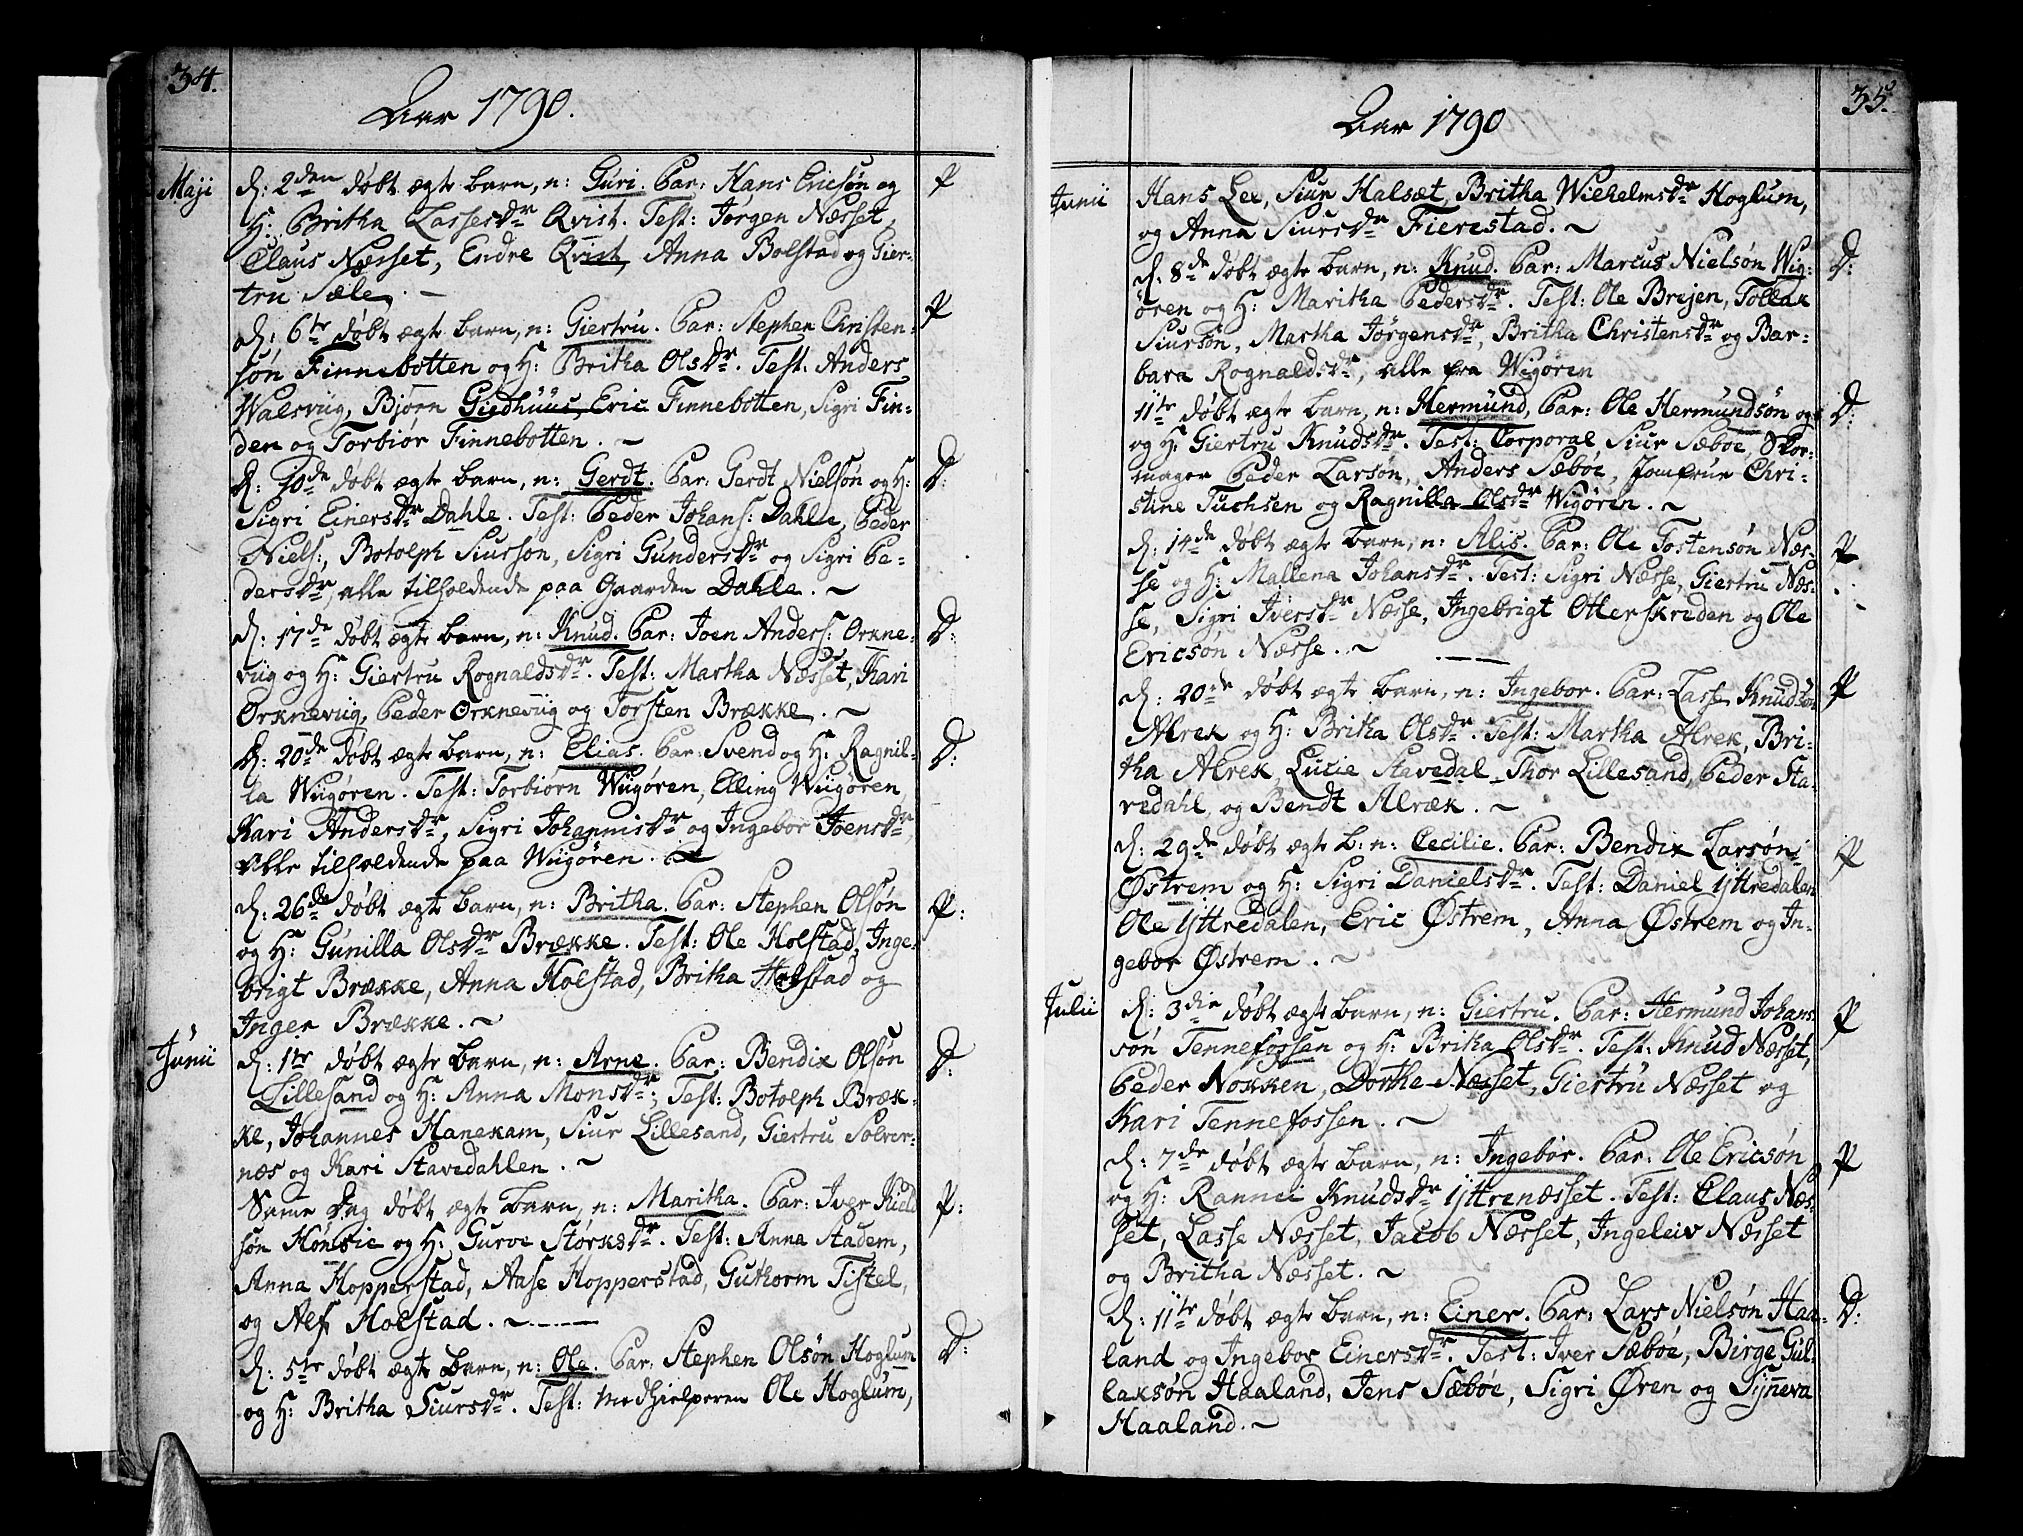 34.
Aar 1790.
Maji
d: 2den døbt ægte barn, n: Guri. Par: Hans Ericsøn og
H: Britha Lassesdr Qvist. Test: Jørgen Næsset,
Claus Næsset, Endre Qvist, Anna Bolstad og Gier-
tru Sæle. –
P
d: 6te døbt ægte barn, n: Giertru. Par: Stephen Christen-
søn Finnebotten og H: Britha Olsdr. Test: Anders
Walsviig, Bjørn Giedhuus, Eric Finnebotten, Sigri Fin-
den og Torbiør Finnebotten. ~
P
d: 10de døbt ægte barn, n: Gerdt. Par: Gerdt Nielsøn og H:
Sigri Einersdr Dahle. Test: Peder Johans: Dahle, Peder
Niels:, Botolph Siurson, Sigri Gundersdr og Sigri Pe-
dersdr, alle tilholdende paa Gaarden Dahle. ~
D:
d: 17de døbt ægte barn, n: Knud. Par: Joen Anders: Orkne-
viig og H: Giertru Rognaldsdr. Test: Martha Næsset, Kari
Orkneviig, Peder Orkneviig og Torsten Brække. ~
D:
d: 20de døbt ægte barn, n: Elias. Par: Svend og H: Ragnil-
la Wiigøren. Test: Torbiørn Wiigøren, Elling Wiigøren,
Kari Andersdr, Sigri Johannisdr og Ingebor Joensdr,
alle tilholdende paa Wiigøren. ~
D:
d: 26de døbt ægte barn, n: Britha. Par: Stephen Olsøn
og H: Gunilla Olsdr Brække. Test: Ole Holstad, Inge-
brigt Brække, Anna Holstad, Britha Holstad og
Inger Brække. ~
P:
Junii
d: 1te døbt ægte barn, n: Arne. Par: Bendix Olsøn
Lillesand og H: Anna Monsdr; Test: Botolph Bræk-
ke, Johannes Hanekam, Siur Lillesand, Giertru Solver-
næs og Kari Stavedahlen. ~
D:
Samme Dag døbt ægte barn, n: Maritha. Par: Iver Kield
søn Hønsie og H: Gurve Størksdr. Test: Anna Stadem,
Anna Hopperstad, Aase Hopperstad, Guthorm Tistel,
og Alf Holstad. ~
P:
d: 5te døbt ægte barn, n: Ole. Par: Stephen Olsøn Hoglum
og H: Britha Siursdr. Test: Medhielperen Ole Hoglum,
D:
35.
Aar 1790
Junii
Hans Lee, Siur Halsæt, Britha Wilhelmsdr Hoglum,
og Anna Siursdr Fierestad. ~
d: 8de døbt ægte barn, n: Knud. Par: Marcus Nielsøn Wig-
øren og H: Maritha Pedersdr. Test: Ole Brejen, Tollak
Siursøn, Martha Jørgensdr, Britha Christensdr og Bar-
bara Rognaldsdr, alle fra Wigøren
D:
11te døbt ægte barn, n: Hermund, Par: Ole Hermundsøn og
og H: Giertru Knudsdr. Test: Corporal Siur Sæbøe, Skor-
mager Peder Larsøn, Anders Sæbøe, Jomfrue Chri-
stine Tuchsen og Ragnilla Olsdr Wigøren. ~
D:
d: 14de døbt ægte barn, n: Alis. Par: Ole Tostensøn Næs-
se og H: Mallena Johansdr. Test: Sigri Næsse, Giertru Næs-
se, Sigri Iversdr Næsse, Ingebrigt Otterskreden og Ole
Ericsøn Næsse. ~
P
d: 20de døbt ægte barn, n: Ingebor. Par: Lasse Knudsøn
Alrek og H: Britha Olsdr. Test: Martha Alrek, Bri-
tha Alrek, Lucie Stavedal, Thor Lillesand, Peder Sta-
vedahl, og Bendt Alræk. ~
P
d: 29de døbt ægte B: n: Cecilie. Par: Bendix Larsøn
Østrem og H: Sigri Danielsdr. Test: Daniel Yttredalen
Ole Yttredalen, Eric Østrem, Anna Østrem og In-
gebor Østrem. ~
P
Julii
d: 3die døbt ægte barn, n: Giertru. Par: Hermund Johans
søn Tennefossen og H: Britha Olsdr. Test: Knud Næsset,
Peder Nokken, Dorthe Næsset, Giertru Næsset og
Kari Tennefossen. ~
P
d: 7de døbt ægte barn, n: Ingebor. Par: Ole Ericsøn
og H: Rannei Knudsdr Yttrenæsset. Test: Claus Næs-
set, Lasse Næsset, Jacob Næsset, Ingeleiv Næsset
og Britha Næsset. ~
P
d: 11te døbt ægte barn, n: Einer. Par: Lars Nielsøn Haa-
land og Ingebor Einersdr. Test: Iver Sæbøe, Birge Gul-
laksøn Haaland, Jens Sæbøe, Sigri Øren og Synneva
Haaland. ~
D: